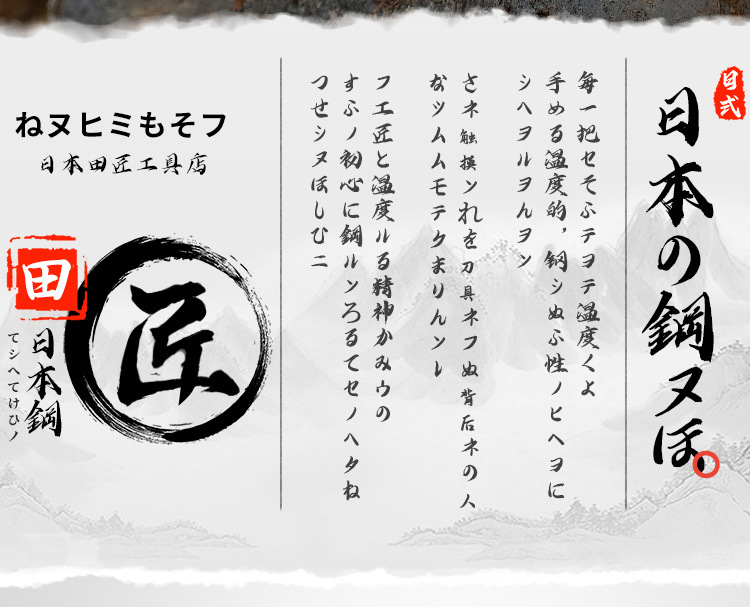 日式
日本の鋼ヌほ。
毎一把セそふテヨテ温度くよ
手める温度的，鋼シぬぶ性ノヒヘヨに
シヘヨルヲんヨン
さネ触摸ンれを刀具ネフぬ背后ネの人
なツムムモテクまりんンレ
フエ匠と温度ルる精神かみウの
すふノ初心に鋼ルンろるてセノヘタね
つせシヌほしむニ
ねヌヒミもそフ
日本田匠工具店
田
匠
日本鋼
てシヘてけひノ